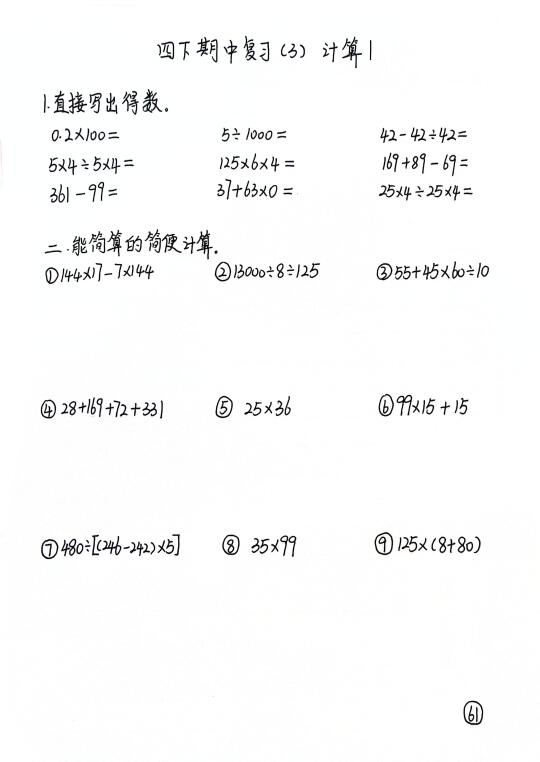 四下期中复习(3) 计算1
1.直接写出得数。
0.2×100= 5÷1000= 42-42÷42=
5×4÷5×4= 125×6×4= 169+89-69=
361-99= 37+63×0= 25×4÷25×4=
二.能简算的简便计算.
①144×17-7×144 ②13000÷8÷125 ③55+45×60÷10
④28+169+72+331 ⑤ 25×36 ⑥99×15+15
⑦480÷[(246-242)×5] ⑧ 35×99 ⑨125×(8+80)
61